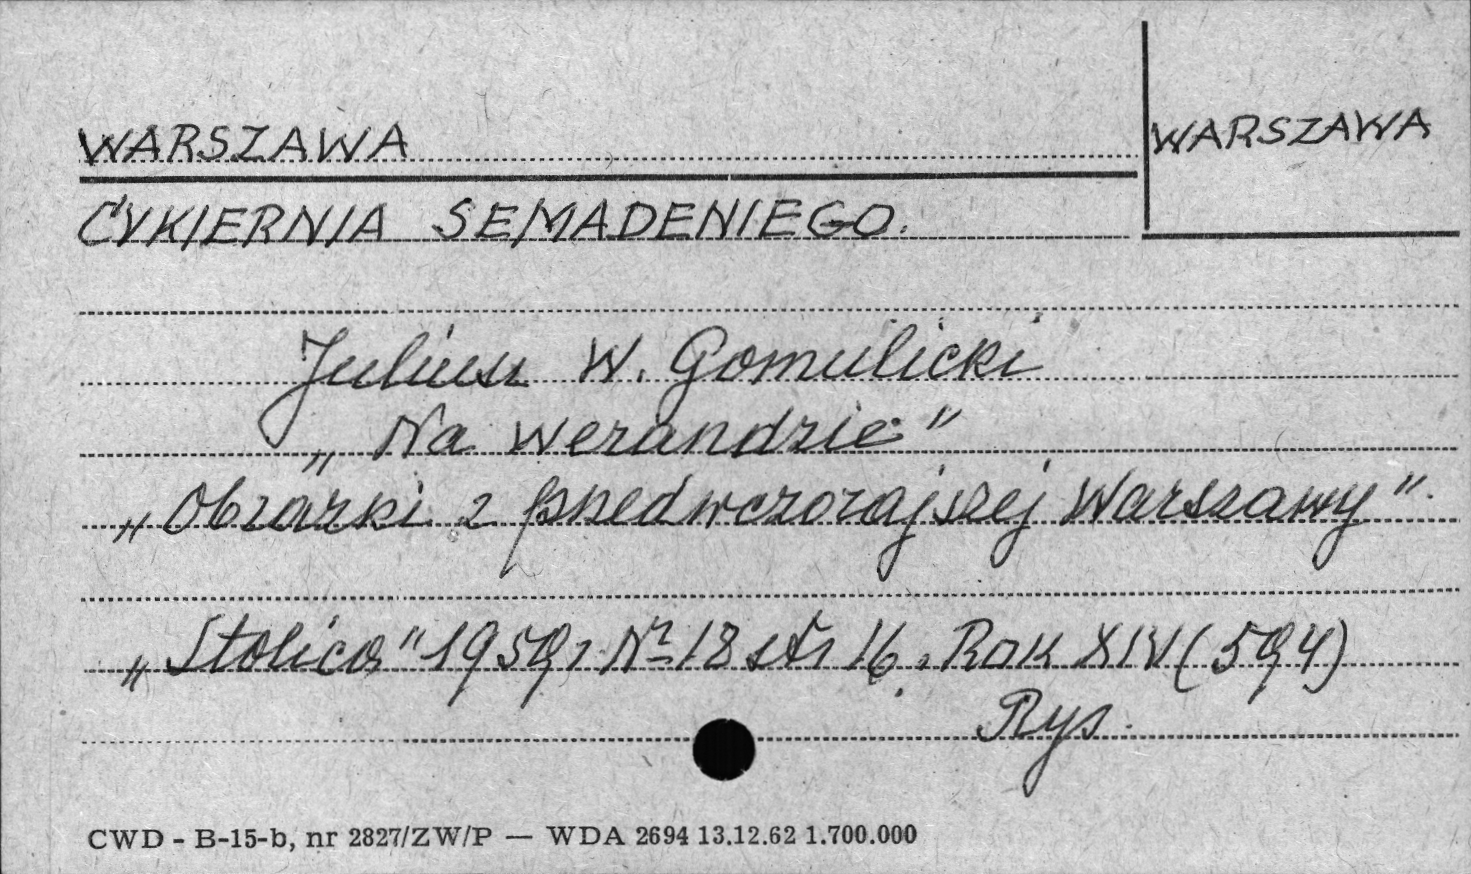 WARSZAWA
WARSZAWA
CUKIERNIA SEMADENIEGO.
Juliusz W. Gomulicki
„Na werandzie"
„Obrazki z przedwczorajszej Warszawy".
„Stolica" 1959 r № 18 str 16. Rok XIV (594)
Rys.
CWD - B-15-b, nr 2827/ZW/P — WDA 2694 13.12.62 1.700.000